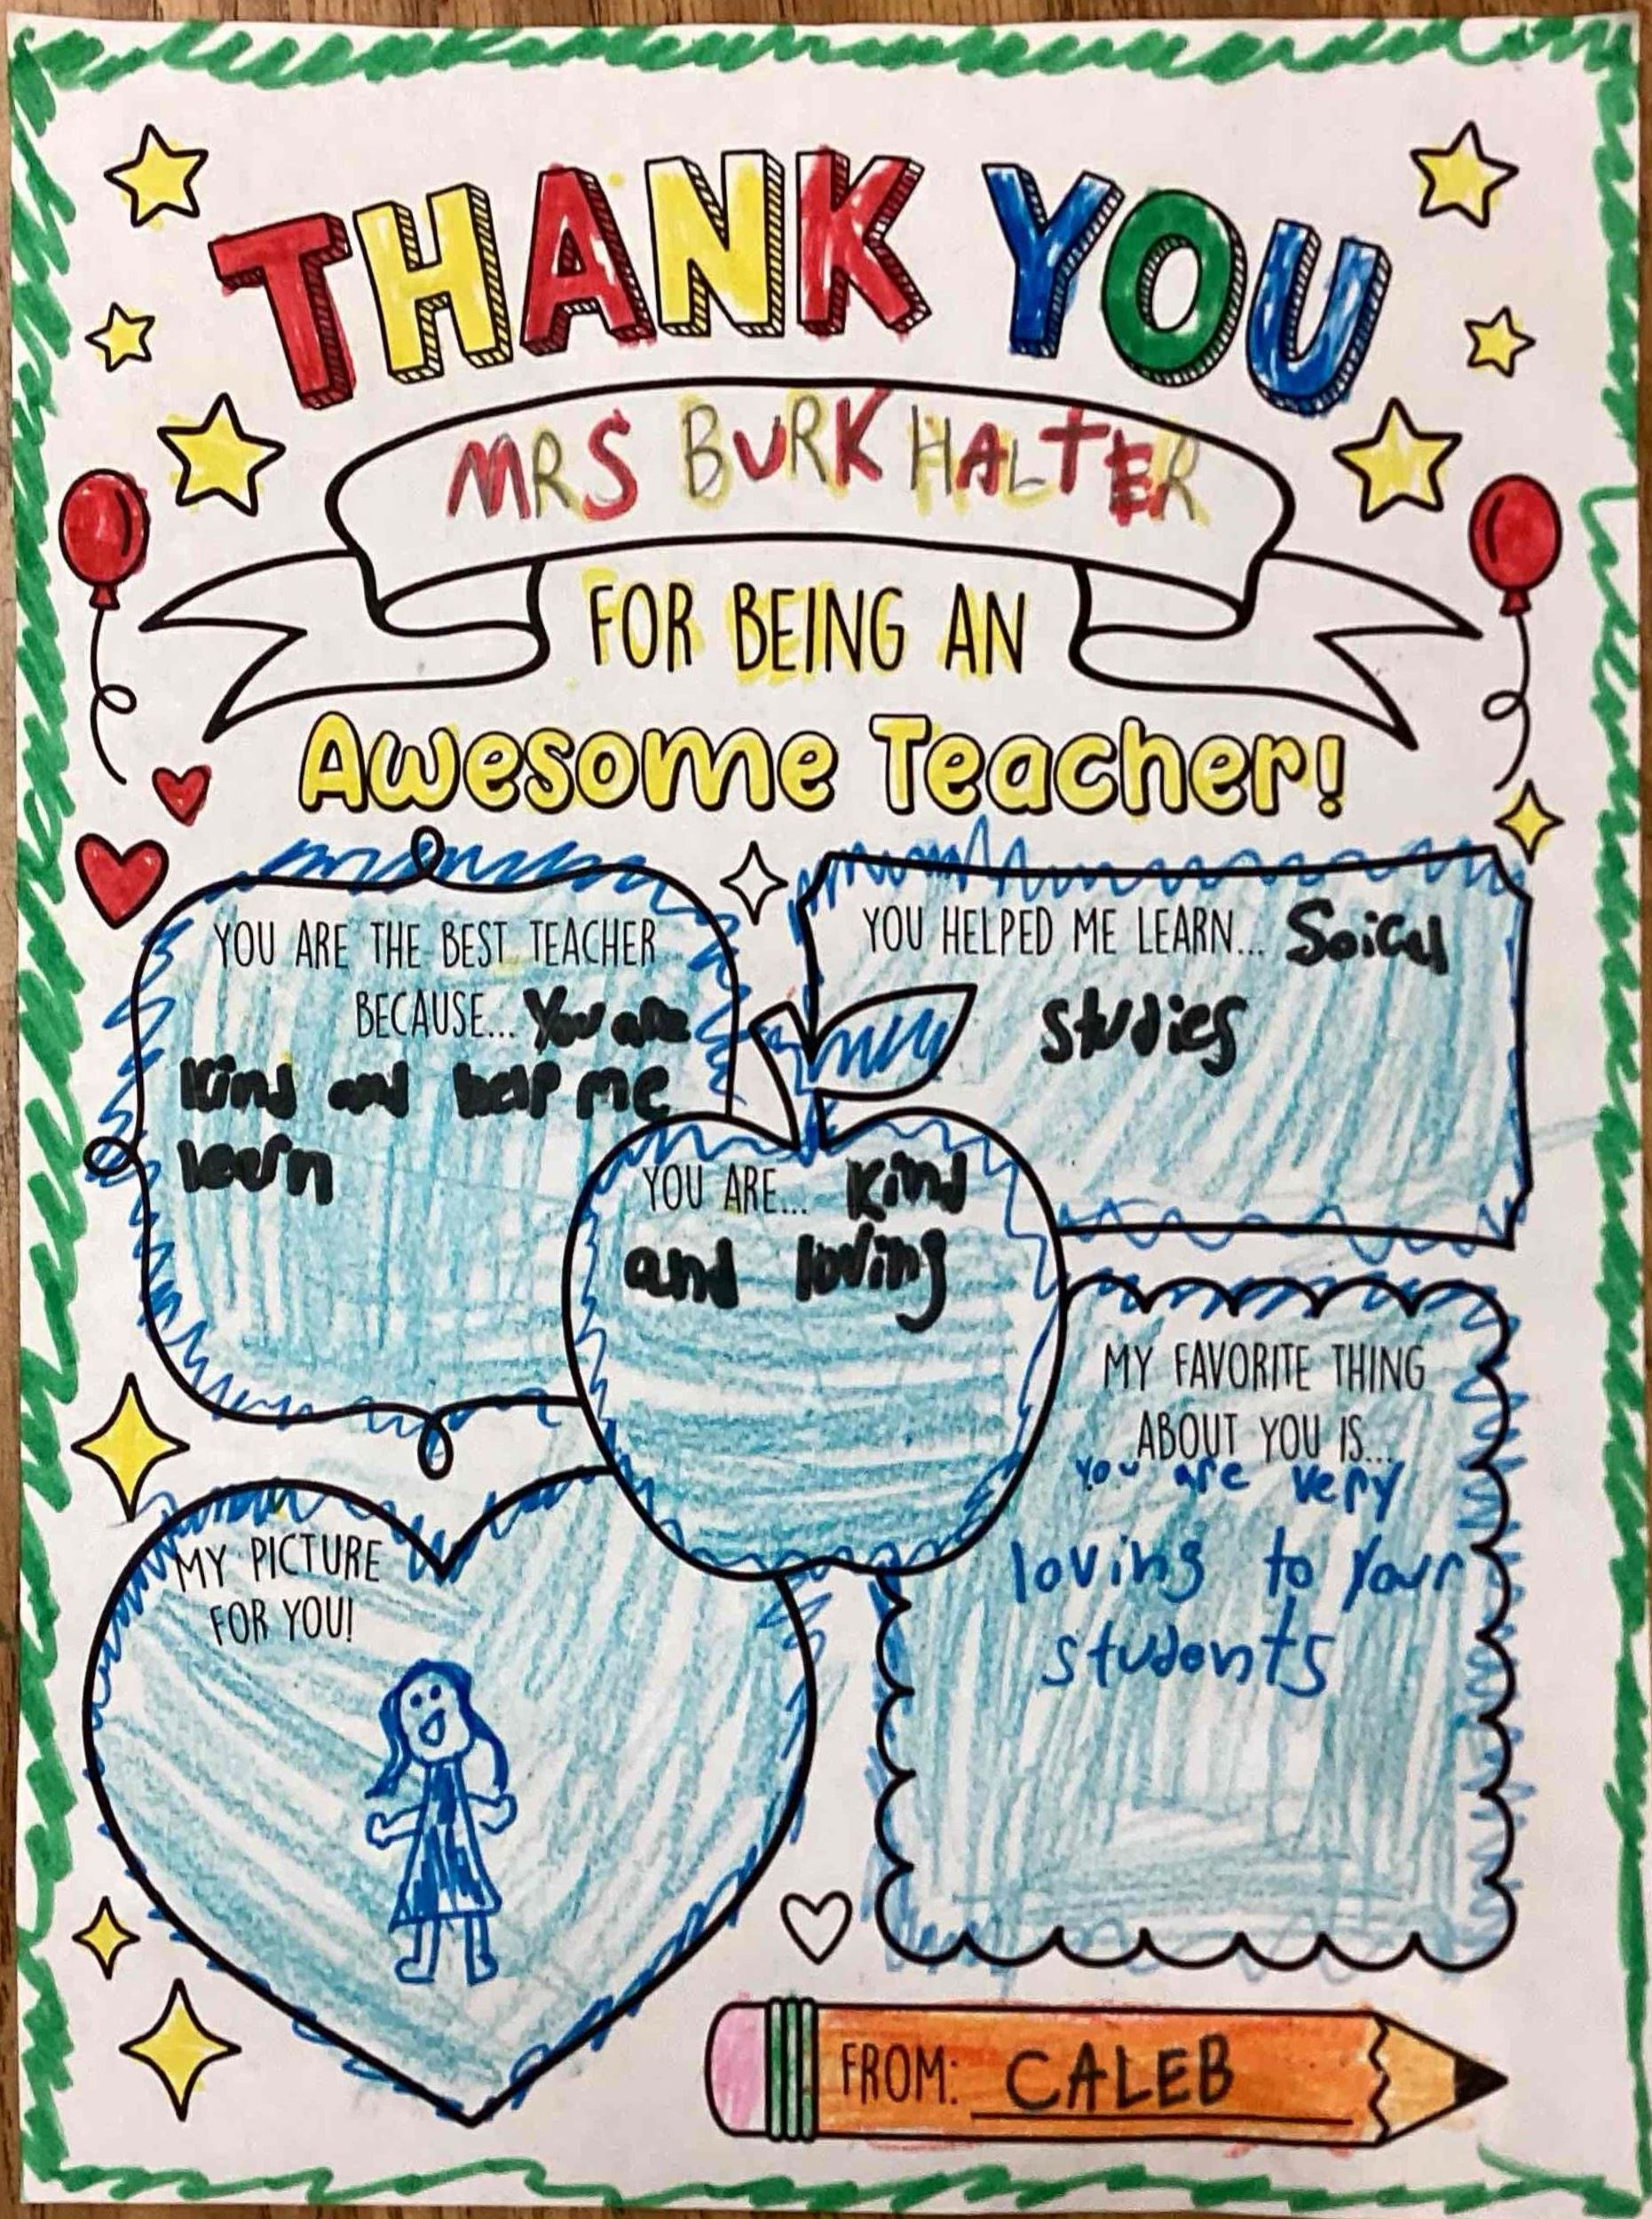 THANK YOU
MRS BURKHALTER
FOR BEING AN
Awesome Teacher!
YOU ARE THE BEST TEACHER
BECAUSE... You are
Kind and help me
learn
YOU HELPED ME LEARN... Soical
studies
YOU ARE... Kind
and loving
MY FAVORITE THING
ABOUT YOU IS...
You are very
loving to your
students
MY PICTURE
FOR YOU!
FROM: CALEB